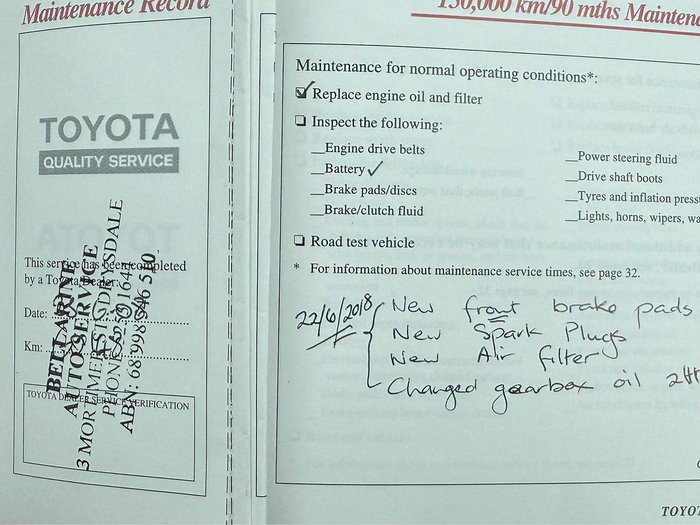 Maintenance Record
TOYOTA
QUALITY SERVICE
This service has been completed
by a Toyota Dealer:
Date:
Km:
TOYOTA DEALER SERVICE VERIFICATION
BELLARINE
AUTO SERVICE
3 MORTIMER ST DRYSDALE
PHONE: 5251
ABN: 68 998 946 510
150,000 km/90 mths
Maintenance for normal operating conditions*:
Replace engine oil and filter
Inspect the following:
__Engine drive belts
__Battery ✓
__Brake pads/discs
__Brake/clutch fluid
__Power steering fluid
__Drive shaft boots
__Tyres and inflation
__Lights, horns, wipers,
Road test vehicle
* For information about maintenance service times, see page 32.
22/6/2018
New front brake pads
New Spark Plugs
New Air filter
Changed gearbox oil